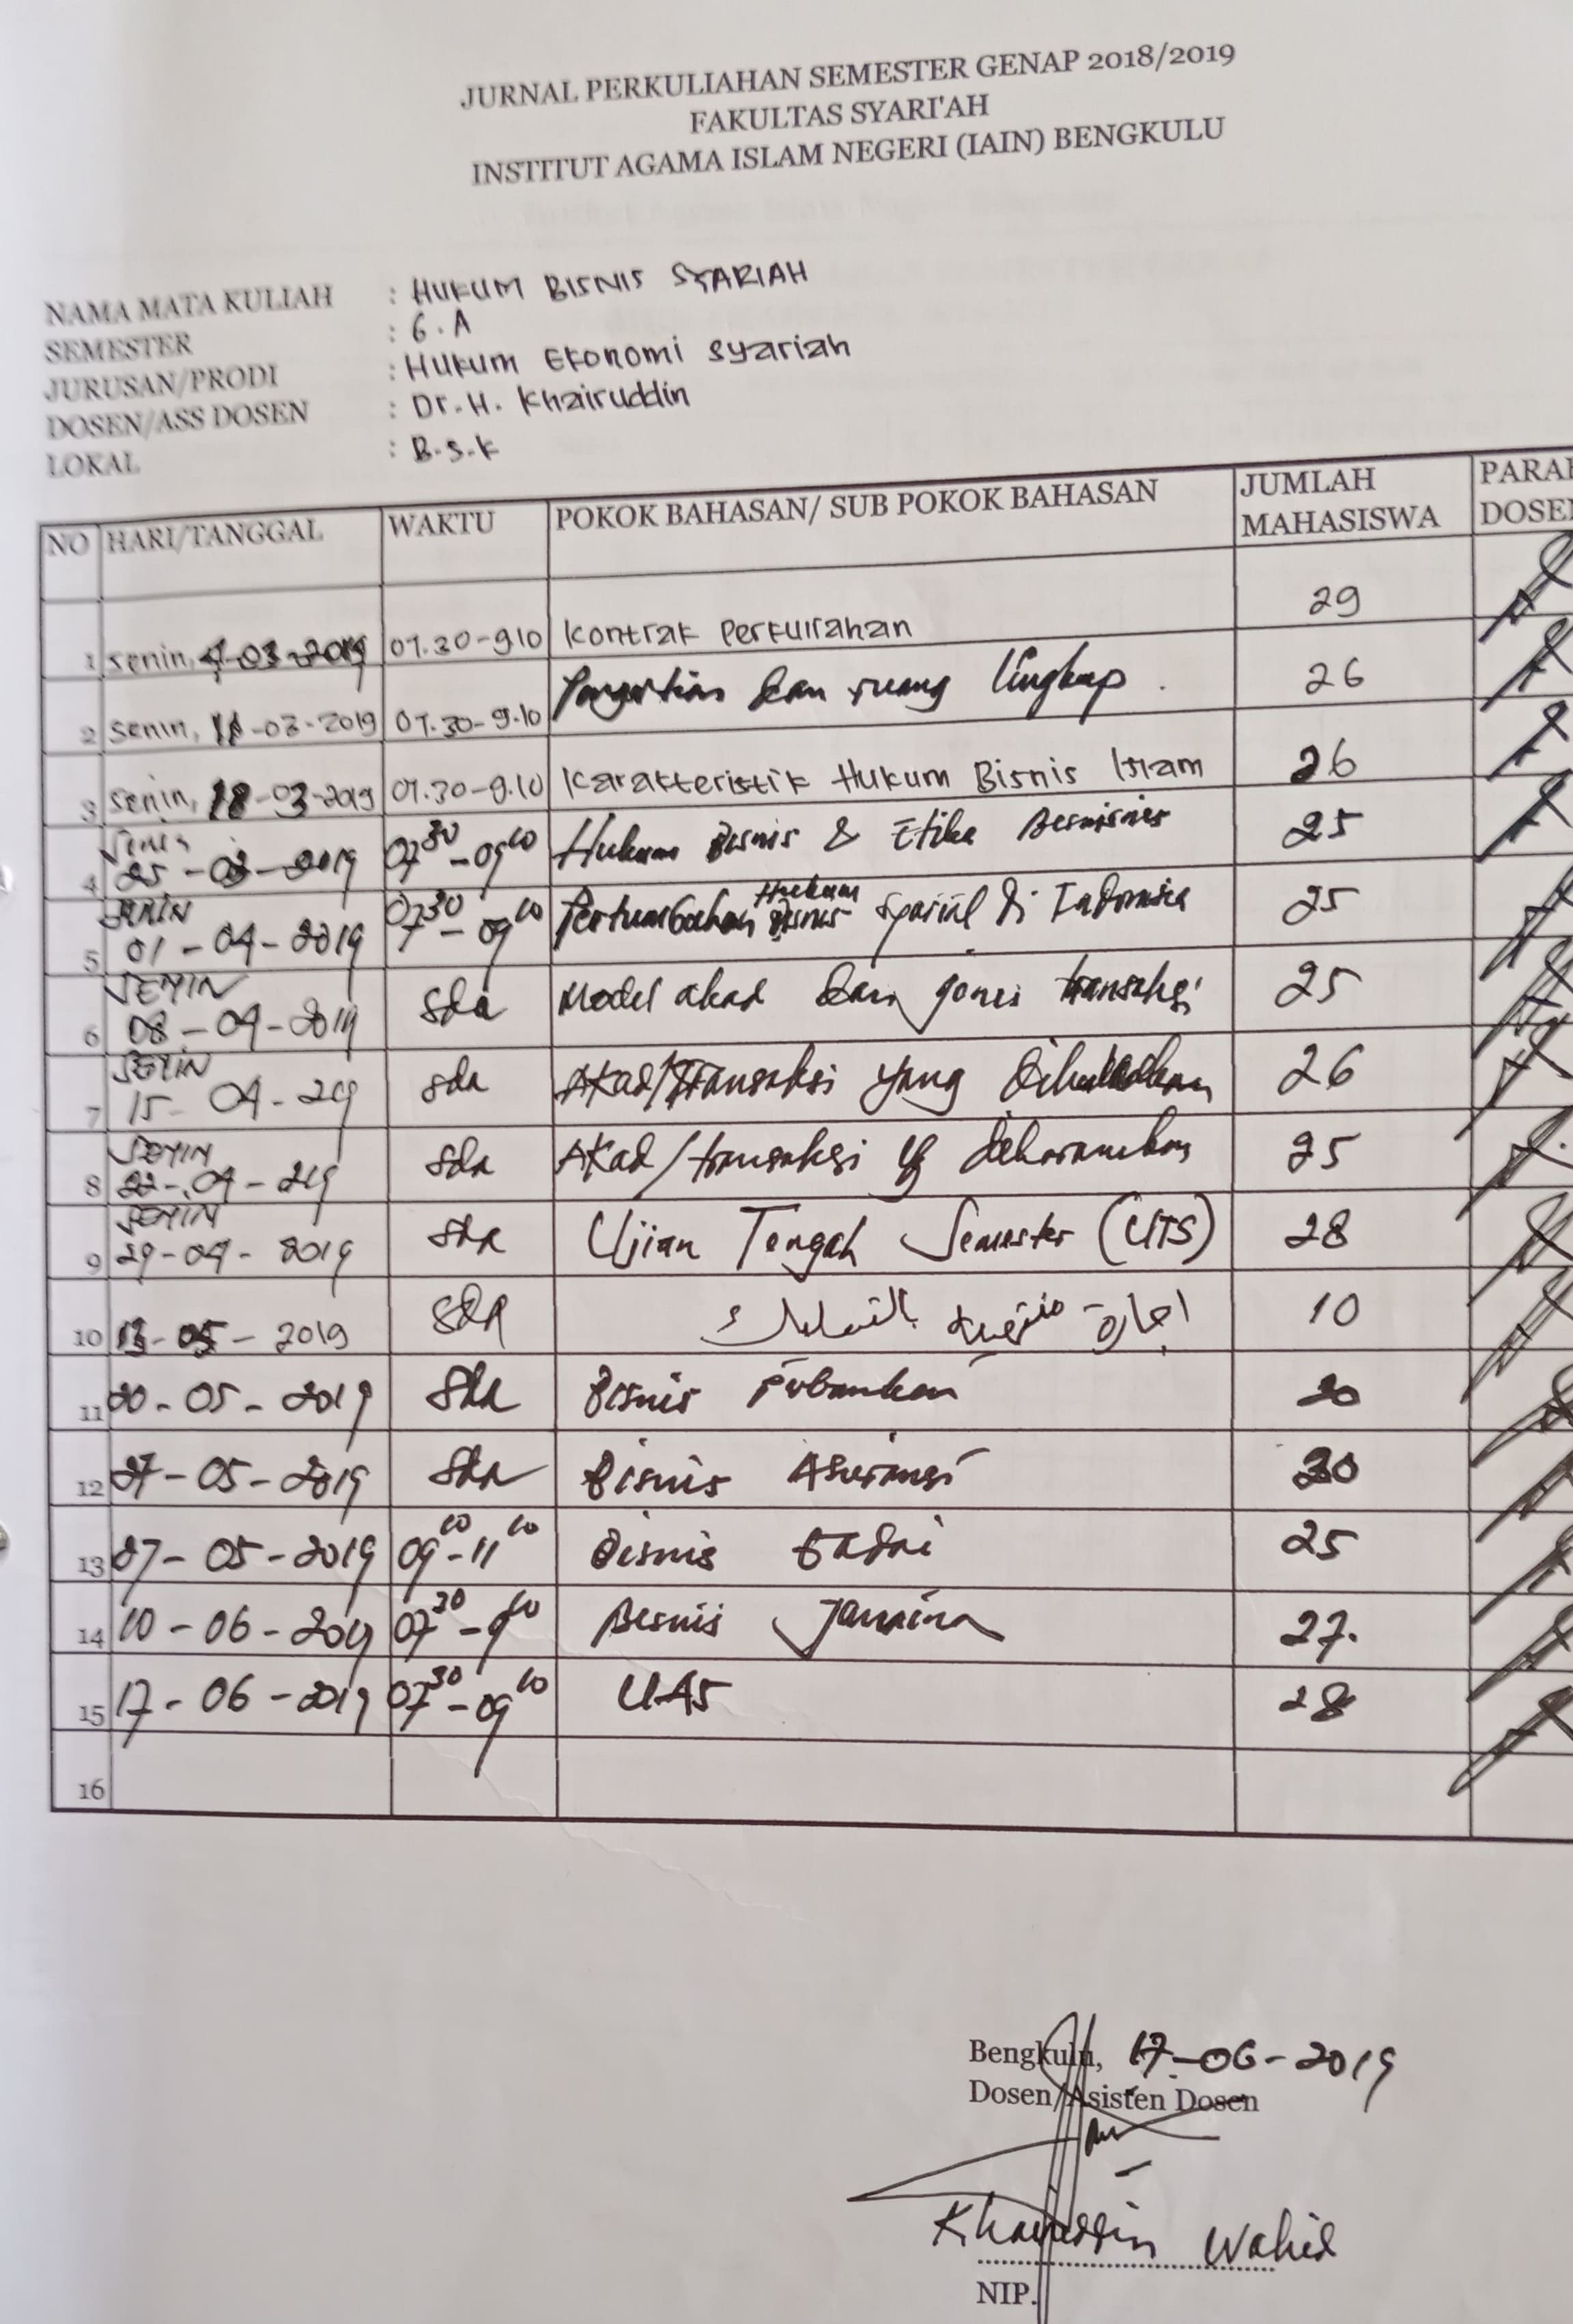 JURNAL PERKULIAHAN SEMESTER GENAP 2018/2019
FAKULTAS SYARI'AH
INSTITUT AGAMA ISLAM NEGERI (IAIN) BENGKULU
NAMA MATA KULIAH : HUKUM BISNIS SYARIAH
SEMESTER : 6.A
JURUSAN/PRODI : HUKUM EKONOMI SYARIAH
DOSEN/ASS DOSEN : Dr. H. Khairuddin
LOKAL : B.S.K
NO HARI/TANGGAL WAKTU POKOK BAHASAN/ SUB POKOK BAHASAN JUMLAH MAHASISWA PARAF DOSEN
1 senin, 4-03-2019 07.30-9.10 Kontrak Perkuliahan 29
2 senin, 11-03-2019 07.30-9.10 Pengertian dan ruang lingkup. 26
3 senin, 18-03-2019 07.30-9.10 Karakteristik Hukum Bisnis Islam 26
4 Senin 25-03-2019 07 30 - 09 10 Hukum Bisnis & Etika Berbisnis 25
5 SENIN 01-04-2019 07 30 - 09 10 Pertumbuhan Hukum Bisnis Syariah di Indonesia 25
6 SENIN 08-04-2019 sda Model akad dan jenis transaksi 25
7 SENIN 15-04-219 sda Akad/Transaksi yang dihalalkan 26
8 SENIN 22-04-219 sda Akad/transaksi yg diharamkan 25
9 SENIN 29-04-2019 sda Ujian Tengah Semester (UTS) 28
10 13-05-2019 sda اجارة منتهية بالتمليك 10
11 20-05-2019 sda Bisnis Perbankan 20
12 27-05-2019 sda Bisnis Asuransi 30
13 27-05-2019 09 10 - 11 10 Bisnis Gadai 25
14 10-06-2019 07 30 - 9 10 Bisnis Jaminan 27.
15 17-06-2019 07 30 - 09 10 UAS 28
16
Bengkulu, 17-06-2019
Dosen/Asisten Dosen
Khairuddin Wahid
NIP.